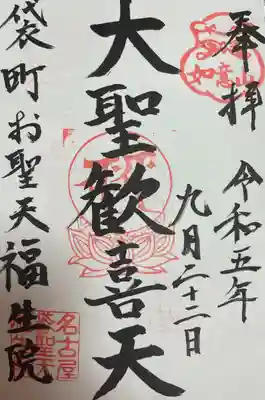 奉拝
令和五年
九月二十二日
大聖歓喜天
袋町お聖天福生院
如意山
名古屋